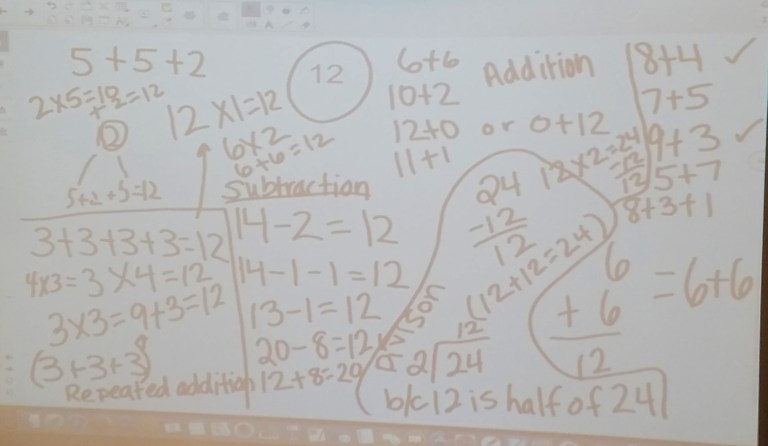 5+5+2
2x5=10+2=12
12
5+2+5=12
12 x1=12
6x2
6+6=12
12
6+6
10+2
12+0 or 0+12
11+1
Addition
8+4 ✓
7+5
9+3 ✓
5+7
8+3+1
3+3+3+3=12
4x3=3x4=12
3x3=9+3=12
(3+3+3)
9
Repeated addition
Subtraction
14-2=12
14-1-1=12
13-1=12
20-8=12
12+8=20
24
-12
12
12x2=24
-12
12
(12+12=24)
12
2)24
b/c 12 is half of 24
6
+ 6
12
=6+6